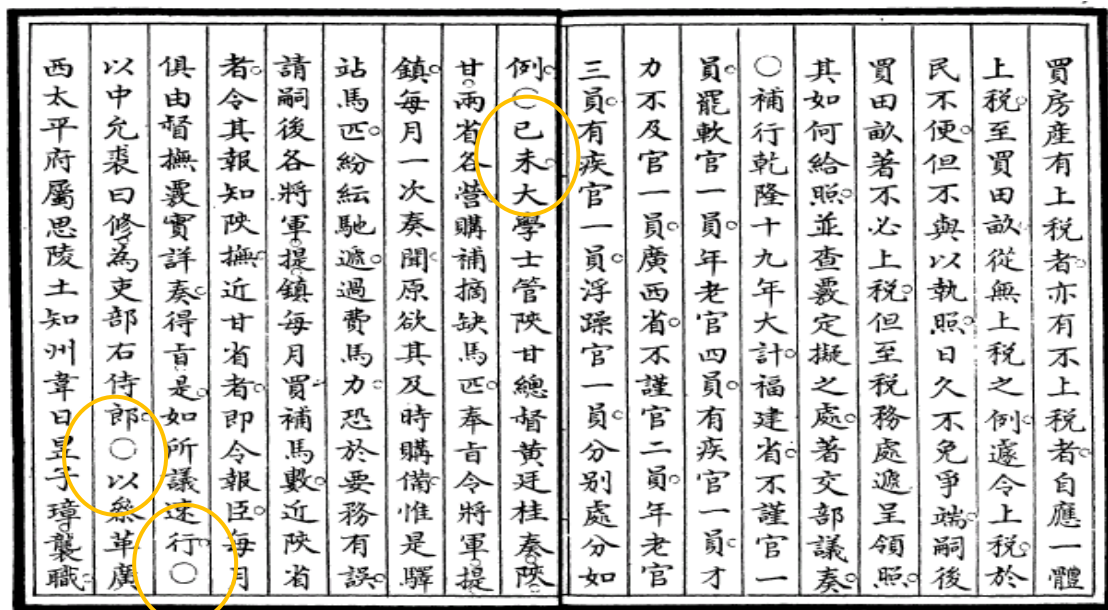 買房產有上稅者。亦有不上稅者。自應一體
上稅。至買田畝。從無上稅之例。遽令上稅。於
民不便。但不與以執照。日久不免爭端。嗣後
買田畝著不必上稅。但至稅務處遞呈領照。
其如何給照。並查覈定擬之處。著交部議奏。
○補行乾隆十九年大計。福建省。不謹官一
員。罷軟官一員。年老官四員。有疾官一員。才
力不及官一員。廣西省。不謹官二員。年老官
三員。有疾官一員。浮躁官一員。分別處分如
例。○己未。大學士管陝甘總督黃廷桂奏。陝
甘兩省各營。購補摘缺馬匹。奉旨令將軍提
鎮。每月一次奏聞。原欲其及時購備。惟是驛
站馬匹。紛紜馳遞。過費馬力。恐於要務有誤。
請嗣後各將軍。提鎮每月買補馬數。近陝省
者。令其報知陝撫。近甘省者。即令報臣。每月
俱由督撫覈實詳奏。得旨。是。如所議速行。○
以中允裘曰修。為吏部右侍郎。○以叅革廣
西太平府屬思陵土知州韋日昱子璋襲職。